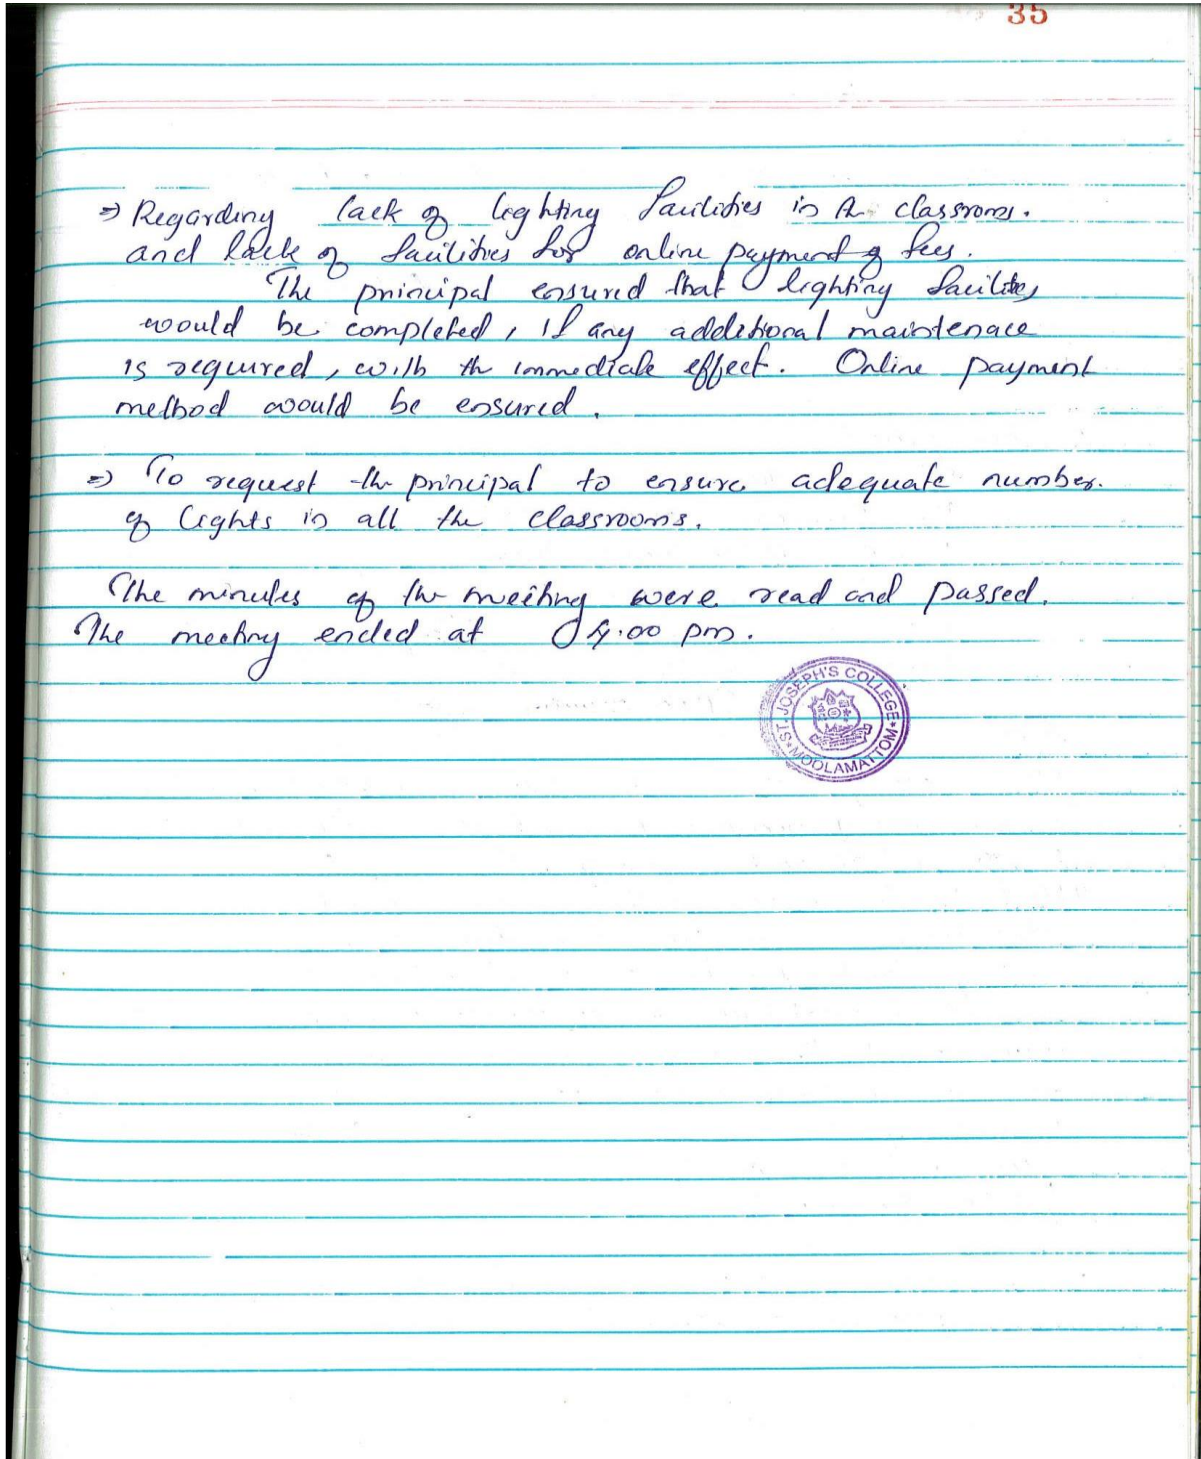 35
⇒ Regarding lack of lighting facilities in the classroms.
and lack of facilities for online payment of fees.
The principal ensured that lighting facilities
would be completed, if any additional maintenace
is required, with the immediate effect. Online payment
method would be ensured.
⇒ To request the principal to ensure adequate number.
of lights in all the classrooms.
The minutes of the meeting were read and passed.
The meeting ended at 4.00 pm.
ST. JOSEPH'S COLLEGE
* MOOLAMATTOM *